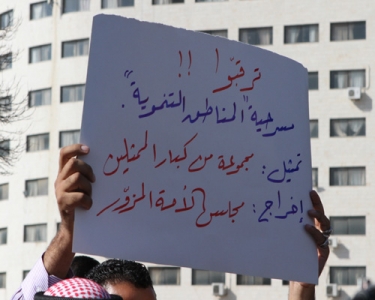 ترقبّوا !!
مسرحية "المناطق التنموية".
تمثيل: مجموعة من كبار الممثلين
إخراج: مجلس الأمة المزوّر